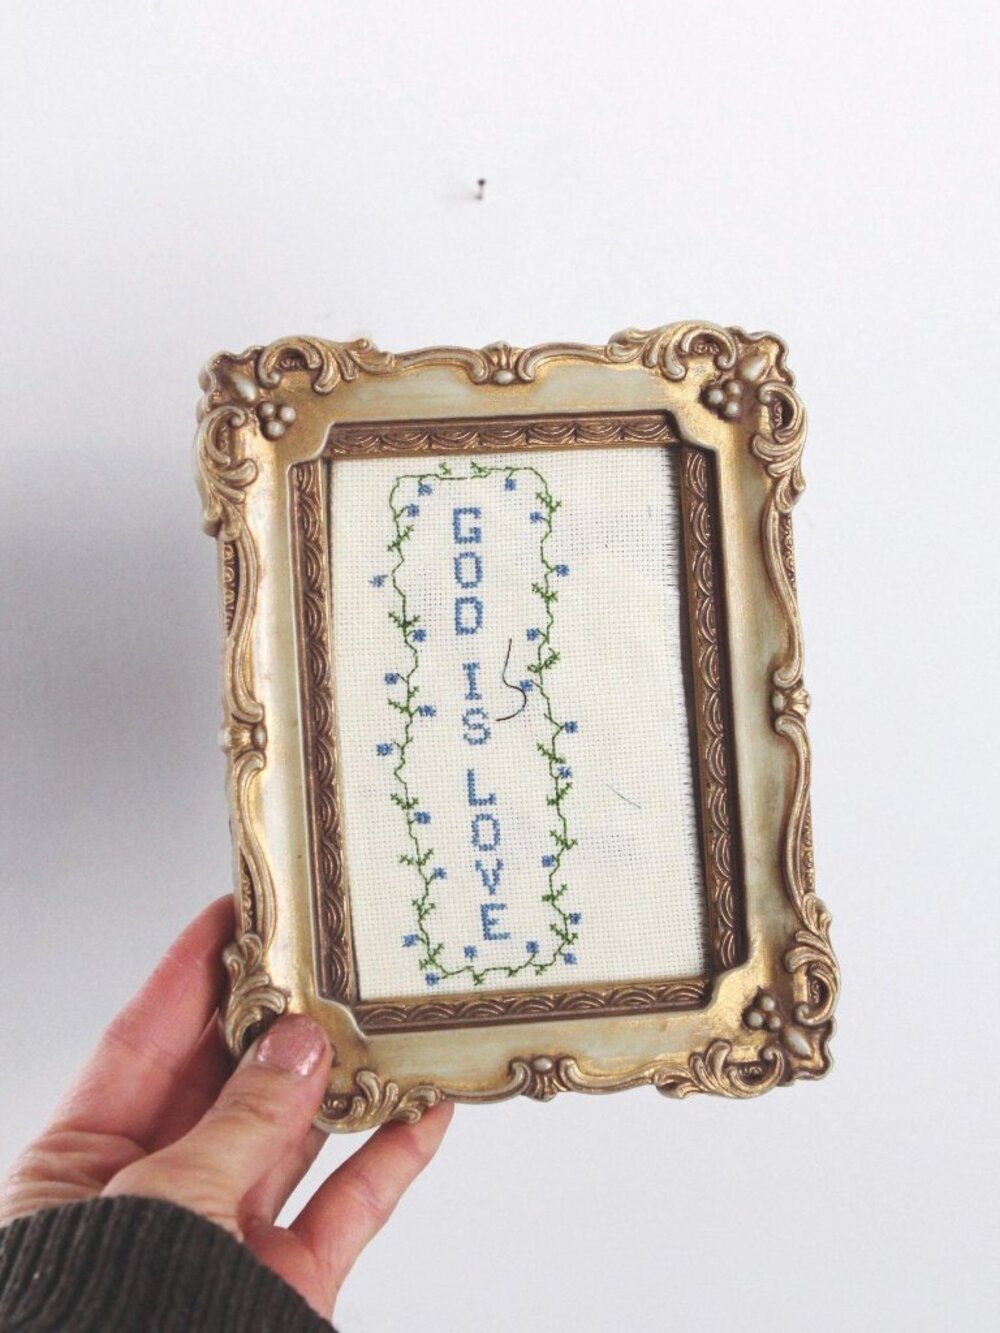 GOD
IS
LOVE